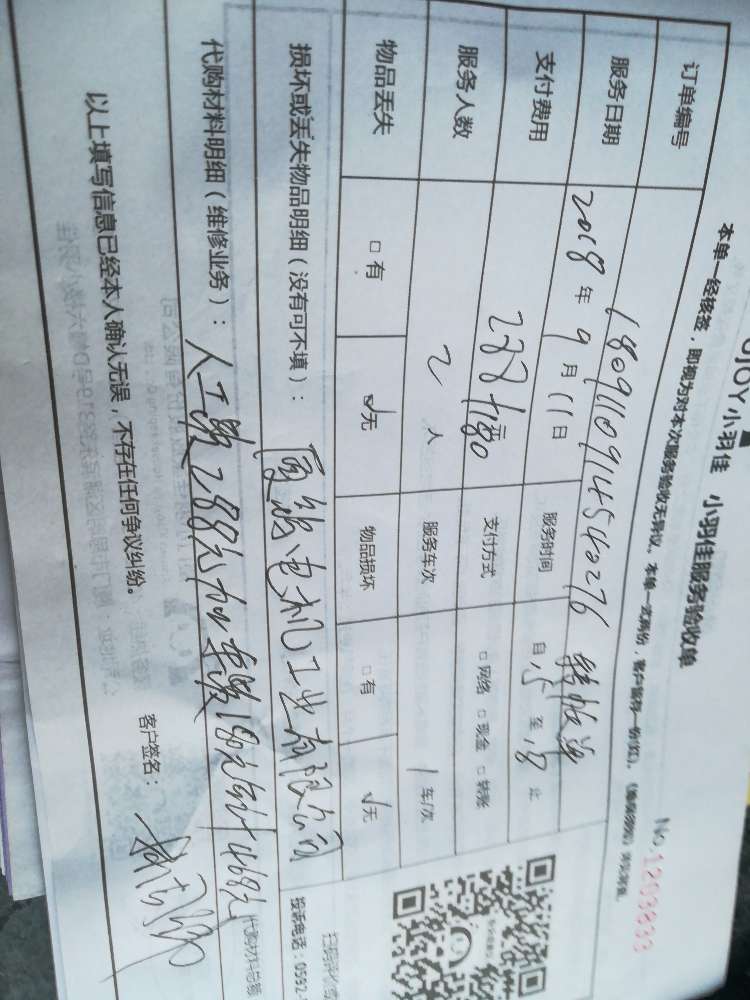 JOY小羽佳 小羽佳服务验收单
No.1203833
本单一经接签,即视为对本次服务验收无异议。本单一式两份,客户留存一份(红),
订单编号 180911091454027б 转帐单
服务日期 2018年9月11日 服务时间 自15至18止
支付费用 288+180 支付方式 □网络 □现金 □转账
服务人数 2人 服务车次 1车/次
物品丢失 □有 √无 物品损坏 □有 √无
损坏或丢失物品明细(没有可不填): 电机工业有限公司
代购材料明细(维修业务): 人工费288元加车费180元合计468元
代购材料总额
以上填写信息已经本人确认无误,不存在任何争议纠纷。 客户签名:
投诉电话:0592-